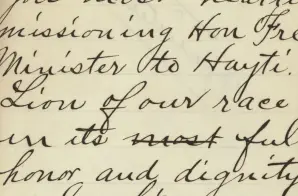 you most heartily
missioning Hon Fre
Minister to Hayti.
Lion of our race
in its ~~most~~ ful
honor and dignity